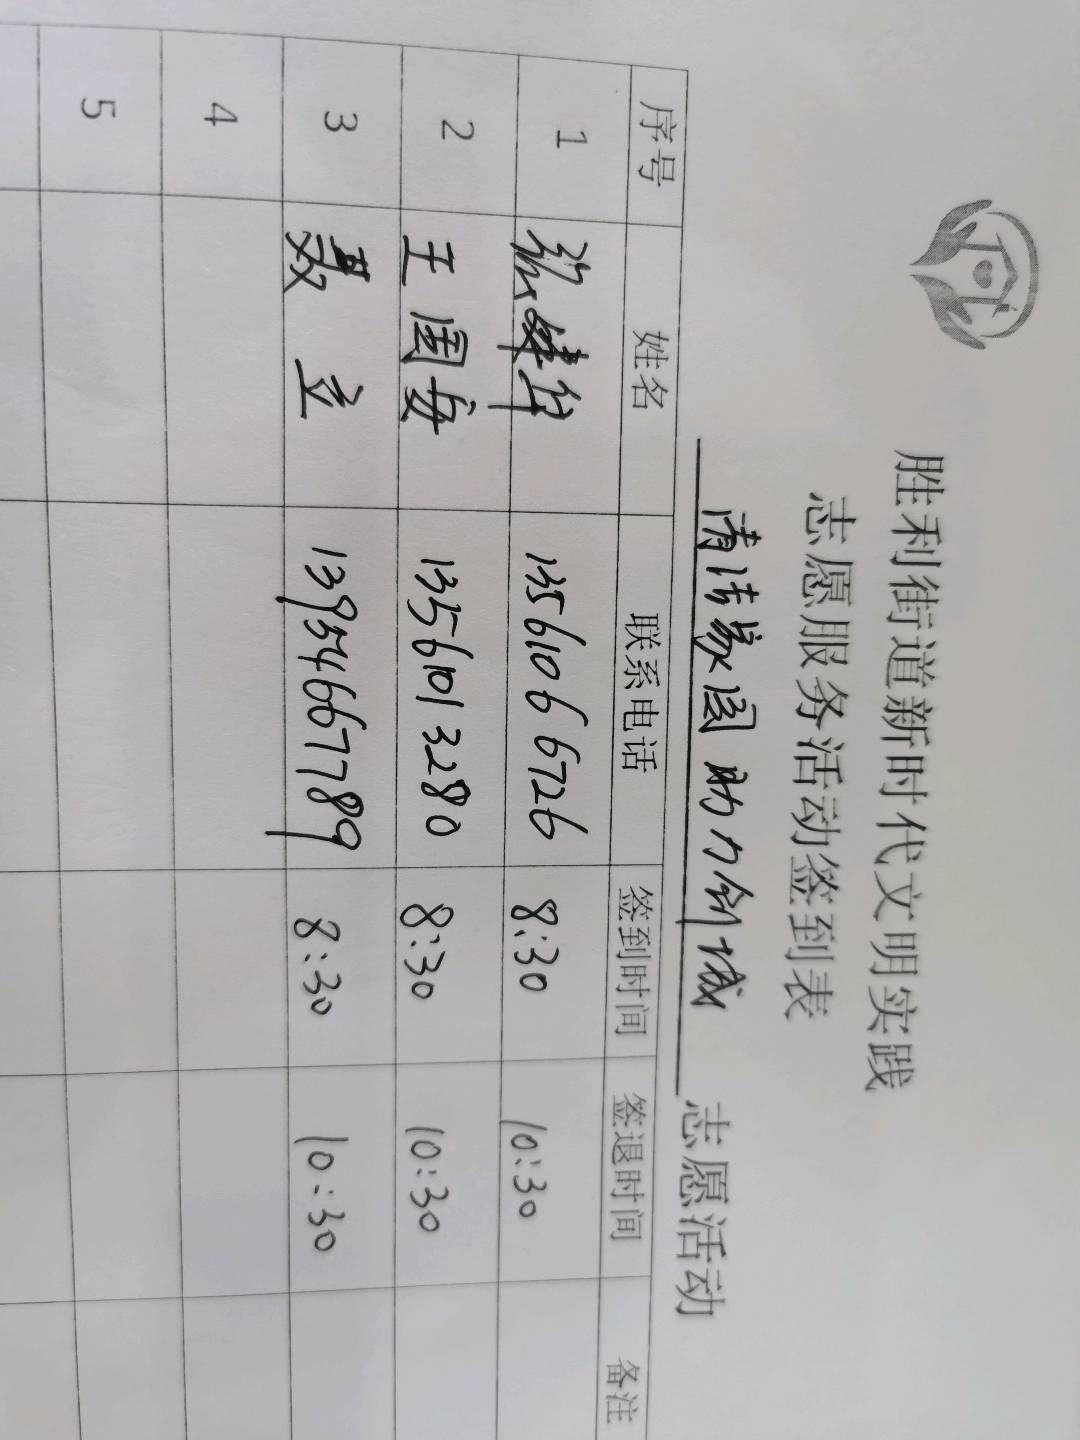 胜利街道新时代文明实践
志愿服务活动签到表
清洁家园 助力创城 志愿活动
序号 姓名 联系电话 签到时间 签退时间 备注
1 13561066726 8:30 10:30
2 王国安 13561013280 8:30 10:30
3 聂立 13954667789 8:30 10:30
4
5